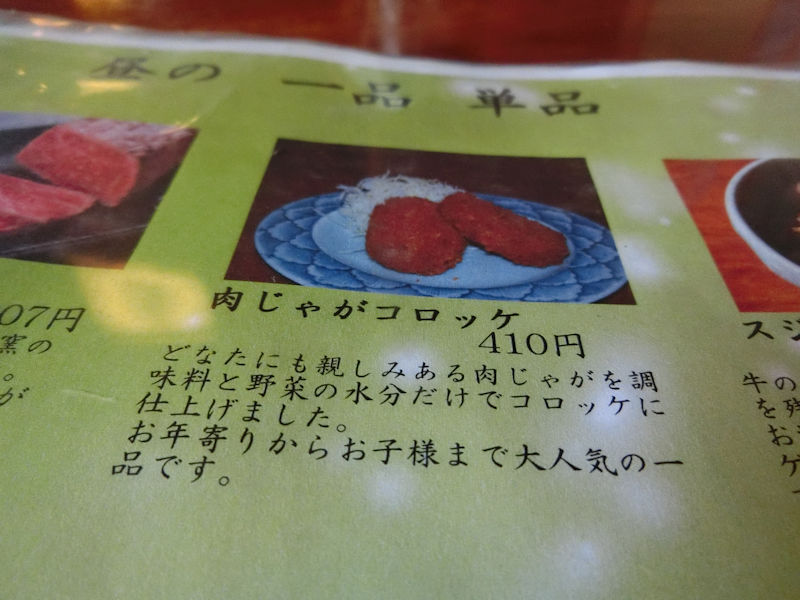 昼の 一品 単品
肉じゃがコロッケ
410円
どなたにも親しみある肉じゃがを調
味料と野菜の水分だけでコロッケに
仕上げました。
お年寄りからお子様まで大人気の一
品です。
07円
窯の
。
が
スジ
牛の
を残
お
ゲ